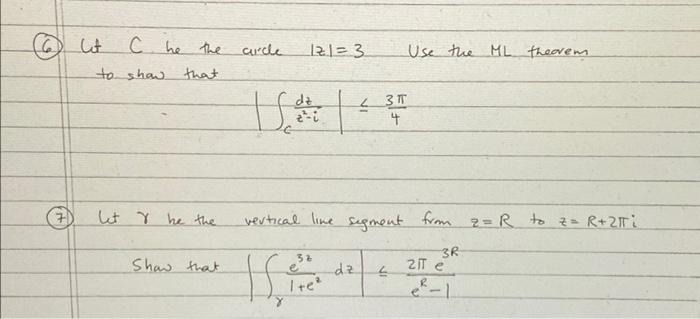 ⑥ Let C be the circle |z| = 3 Use the ML theorem
to show that
| ∫_C dz / (z² - i) | ≤ 3π / 4
⑦ Let γ be the vertical line segment from z = R to z = R + 2πi
Show that | ∫_γ e^{3z} / (1 + e^z) dz | ≤ 2π e^{3R} / (e^R - 1)